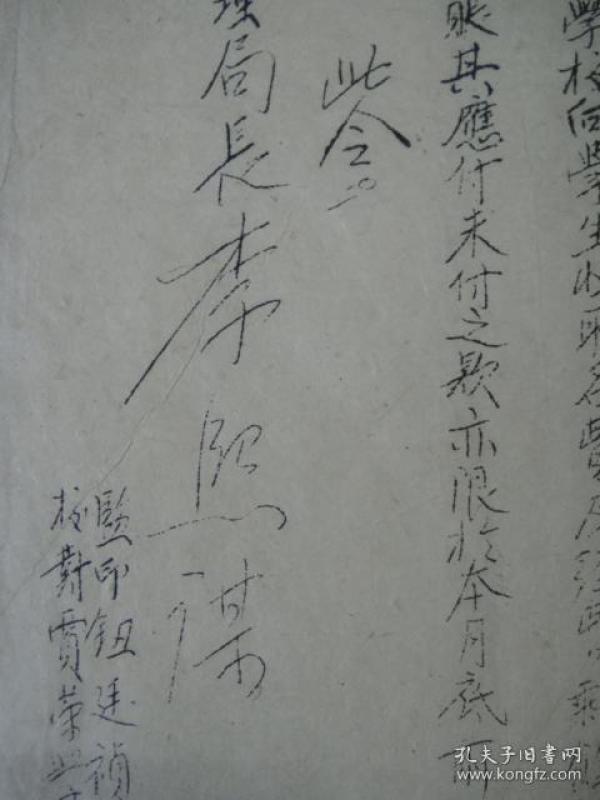 學校向學生收取各費及經費
賬其應付未付之款亦限於本月底前
此令。
理局長李熙謀
監印鈕廷禎
校對賈荣
孔夫子旧书网
www.kongfz.com